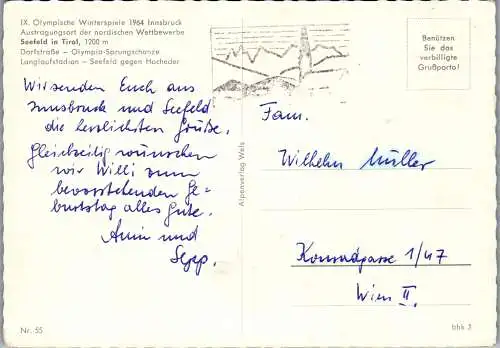 IX. Olympische Winterspiele 1964 Innsbruck
Austragungsort der nordischen Wettbewerbe
Seefeld in Tirol, 1200 m
Dorfstraße – Olympia-Sprungschanze
Langlaufstadion – Seefeld gegen Hocheder
Benützen
Sie das
verbilligte
Grußporto!
Wir senden Euch aus
Innsbruck und Seefeld
die herzlichsten Grüße.
Gleichzeitig wünschen
wir Willi zum
bevorstehenden Ge-
burtstag alles Gute.
und
Sepp.
Alpenverlag Wels
Fam.
Wilhelm Müller
Konradgasse 1/47
Wien II.
Nr. 55
bhk 3